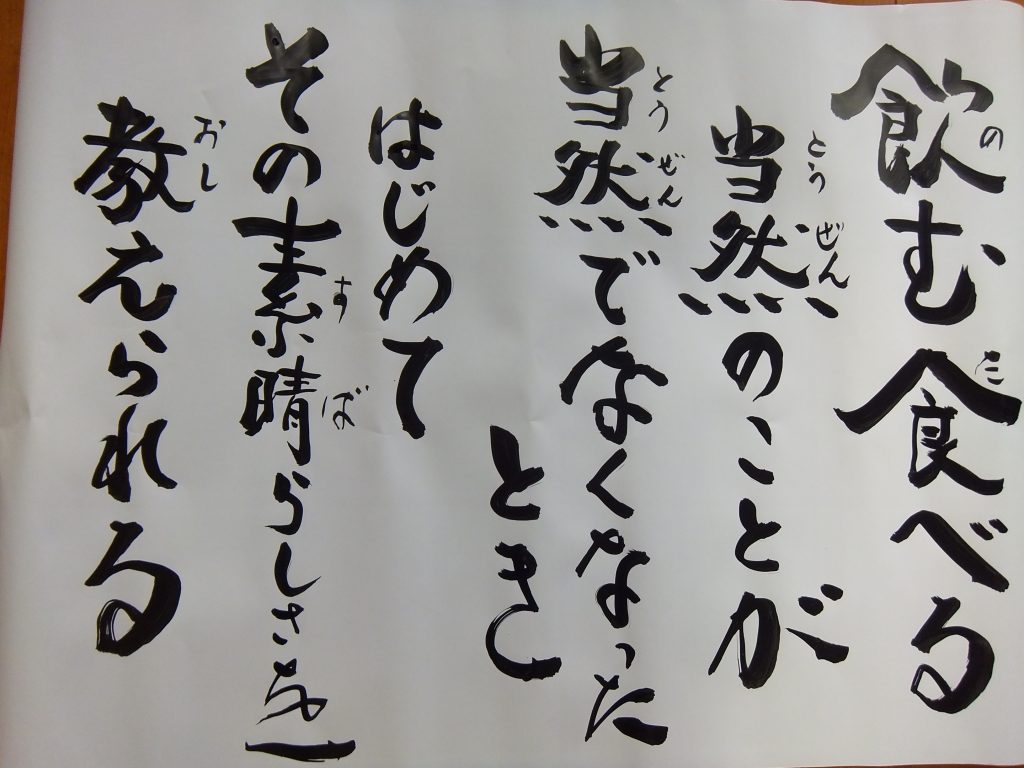 飲む食べる
当然のことが
当然でなくなった
とき
はじめて
その素晴らしさを
教えられる
の
た
とうぜん
とうぜん
すば
おし